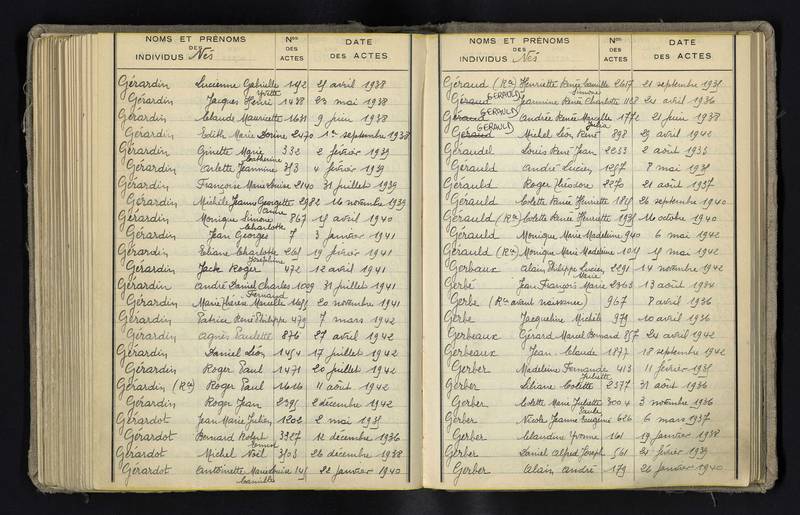 NOMS ET PRÉNOMS DES INDIVIDUS Nés Nos DES ACTES DATE DES ACTES
Gérardin Lucienne Gabrielle Yvette 1192 25 avril 1938
Gérardin Jacques Henri 1438 23 mai 1938
Gérardin Claude Mauricette 1631 9 juin 1938
Gérardin Edith Marie Denise 2470 1er septembre 1938
Gérardin Ginette Marie Catherine 332 2 février 1939
Gérardin Arlette Jeannine 353 4 février 1939
Gérardin Françoise Marie Louise 2140 31 juillet 1939
Gérardin Michèle Jeanne Georgette 2982 16 novembre 1939
Gérardin Monique Simone 867 15 avril 1940
Gérardin Jean Georges 7 3 janvier 1941
Gérardin Eliane Charlotte Joséphine 265 19 février 1941
Gérardin Jack Roger 472 12 avril 1941
Gérardin André Daniel Charles Fernand 1009 31 juillet 1941
Gérardin Marie Thérèse Marcelle 1655 20 novembre 1941
Gérardin Patrice René Philippe 479 7 mars 1942
Gérardin Agnès Paulette 876 27 avril 1942
Gérardin Daniel Léon 1454 17 juillet 1942
Gérardin Roger Paul 1471 20 juillet 1942
Gérardin (Ron) Roger Paul 1616 11 août 1942
Gérardin Roger Jean 2395 2 décembre 1942
Gérardot Jean Marie Julien 1206 2 mai 1935
Gérardot Bernard Robert 3327 12 décembre 1936
Gérardot Michel Noël 3503 26 décembre 1938
Gérardot Antoinette Marie Louise Camille 145 22 janvier 1940
NOMS ET PRÉNOMS DES INDIVIDUS Nés Nos DES ACTES DATE DES ACTES
Géraud (Ron) Henriette Renée Camille 2617 21 septembre 1935
GERAULD Jeannine Renée Charlotte 1128 24 avril 1936
GERAULD Andrée Renée Marcelle 1772 21 juin 1938
GERAULD Michel Léon René 898 29 avril 1942
Géraudel Louis René Jean 2233 2 août 1935
Gérauld André Lucien 1257 8 mai 1935
Gérauld Roger Théodore 2270 21 août 1937
Gérauld Colette Renée Henriette 1815 26 septembre 1940
Gérauld (Ron) Colette Renée Henriette 1935 16 octobre 1940
Gérauld Monique Marie Madeleine 940 6 mai 1942
Gérauld (Ron) Monique Marie Madeleine 1019 15 mai 1942
Gerbaux Alain Philippe Lucien 2291 14 novembre 1942
Gerbé Jean François Marie 2363 13 août 1934
Gerbe (Rce avant naissance) 967 8 avril 1936
Gerbe Jacqueline Michèle 979 10 avril 1936
Gerbeaux Gérard Marcel Bernard 857 24 avril 1942
Gerbeaux Jean Claude 1877 18 septembre 1942
Gerber Madeleine Fernande Juliette 413 11 février 1935
Gerber Liliane Colette 2377 31 août 1936
Gerber Colette Marie Juliette 3004 3 novembre 1936
Gerber Nicole Jeanne Eugénie 626 6 mars 1937
Gerber Claudine Yvonne 161 19 janvier 1938
Gerber Daniel Alfred Joseph 561 21 février 1939
Gerber Alain André 179 26 janvier 1940